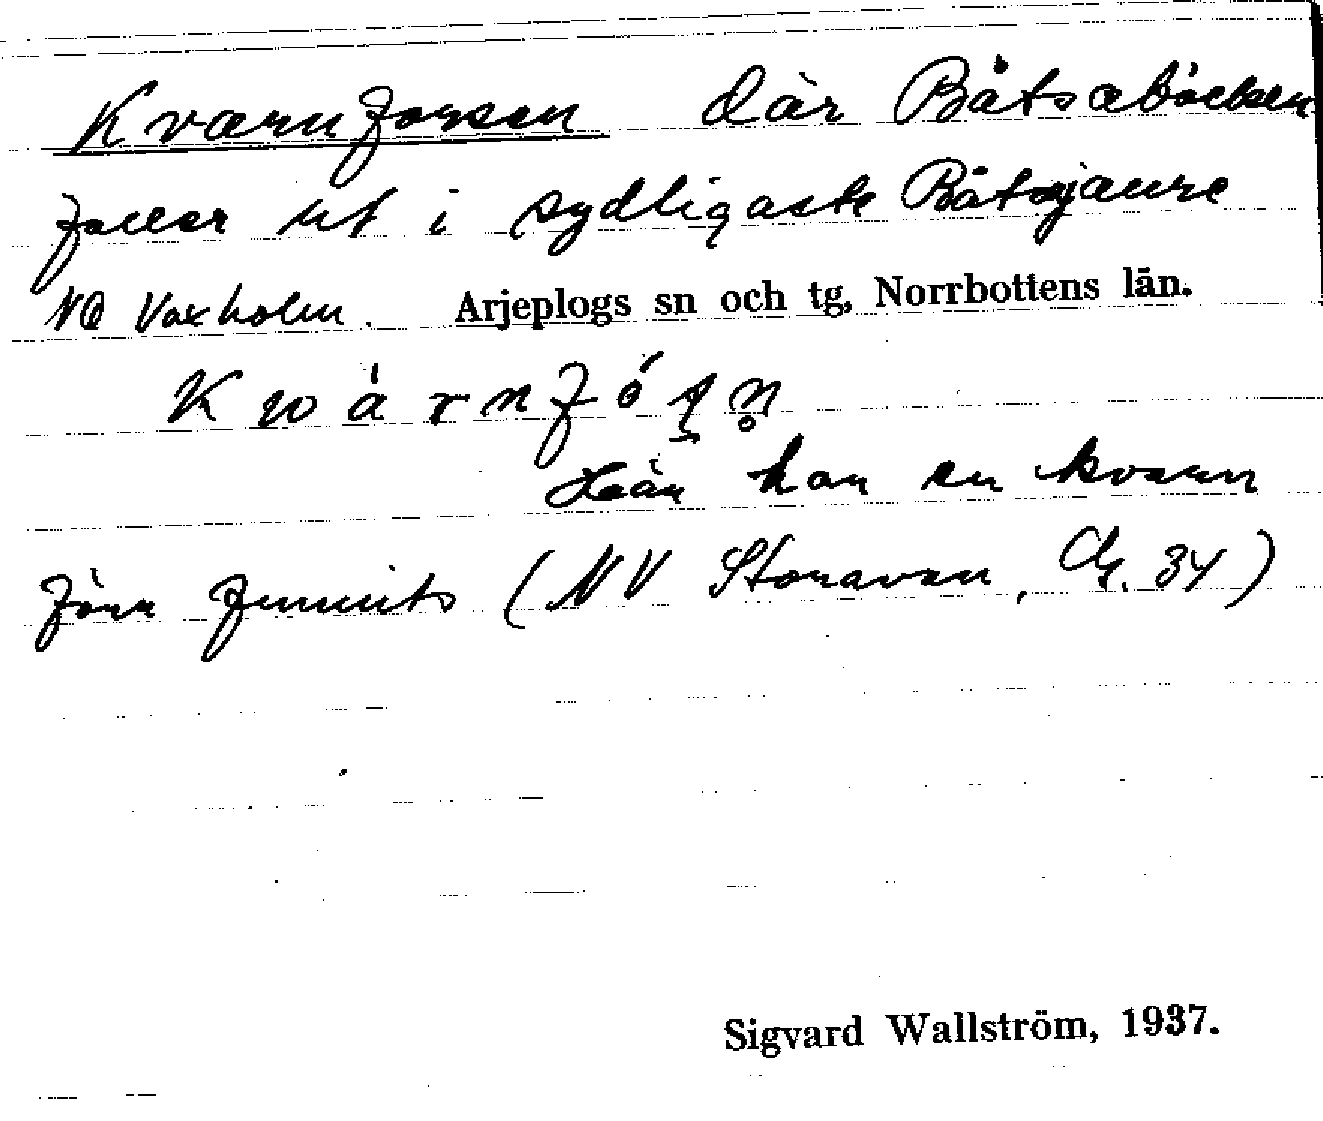 Kvarnforsen där Båtsabäcken
faller ut i sydligaste Båtsjaure
NO Vaxholm. Arjeplogs sn och tg, Norrbottens län.
Kwàrnfósn̥
Här har en kvarn
förr funnits (NV Storavan, 34)
Sigvard Wallström, 1937.